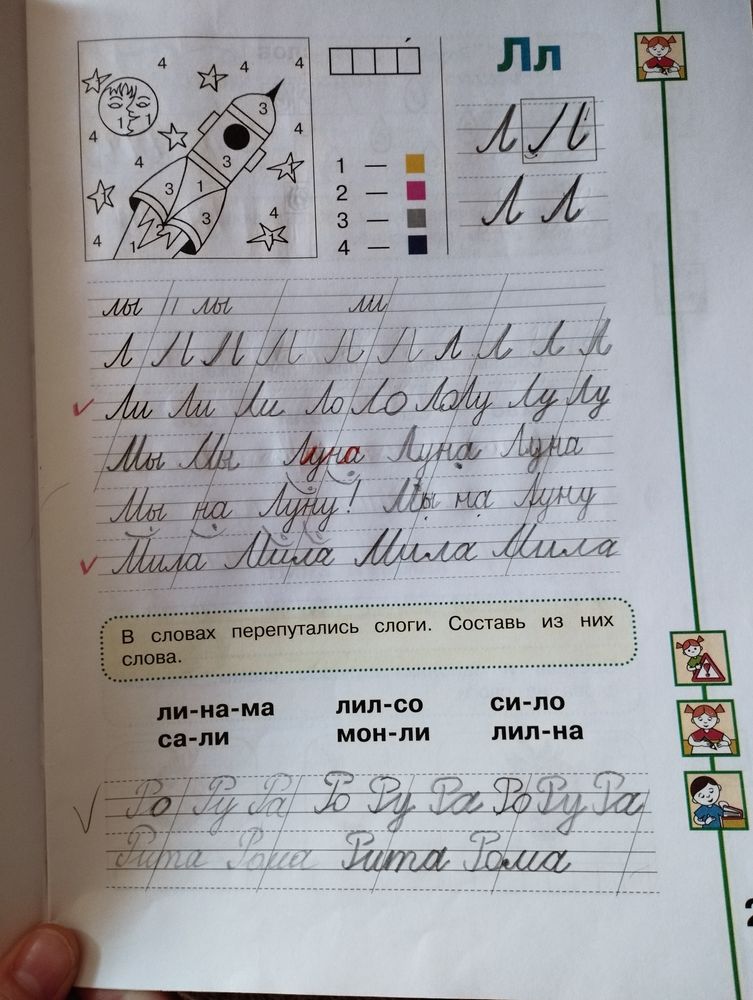 Лл
Л Л Л
Л Л
1 —
2 —
3 —
4 —
4 4 4 3 4 1 1 4 4 3 3 1 4 3 4 1 2
лы лы ли
Л Л Л Л Л Л Л Л Л Л
Ли Ли Ли Ло Ло Ло Лу Лу Лу
Мы Мы Луна Луна Луна
Мы на Луну! Мы на Луну
Мила Мила Мила Мила
В словах перепутались слоги. Составь из них
слова.
ли-на-ма лил-со си-ло
са-ли мон-ли лил-на
Ро Ру Ра Ро Ру Ра Ро Ру Ра
Рита Рома Рита Рома